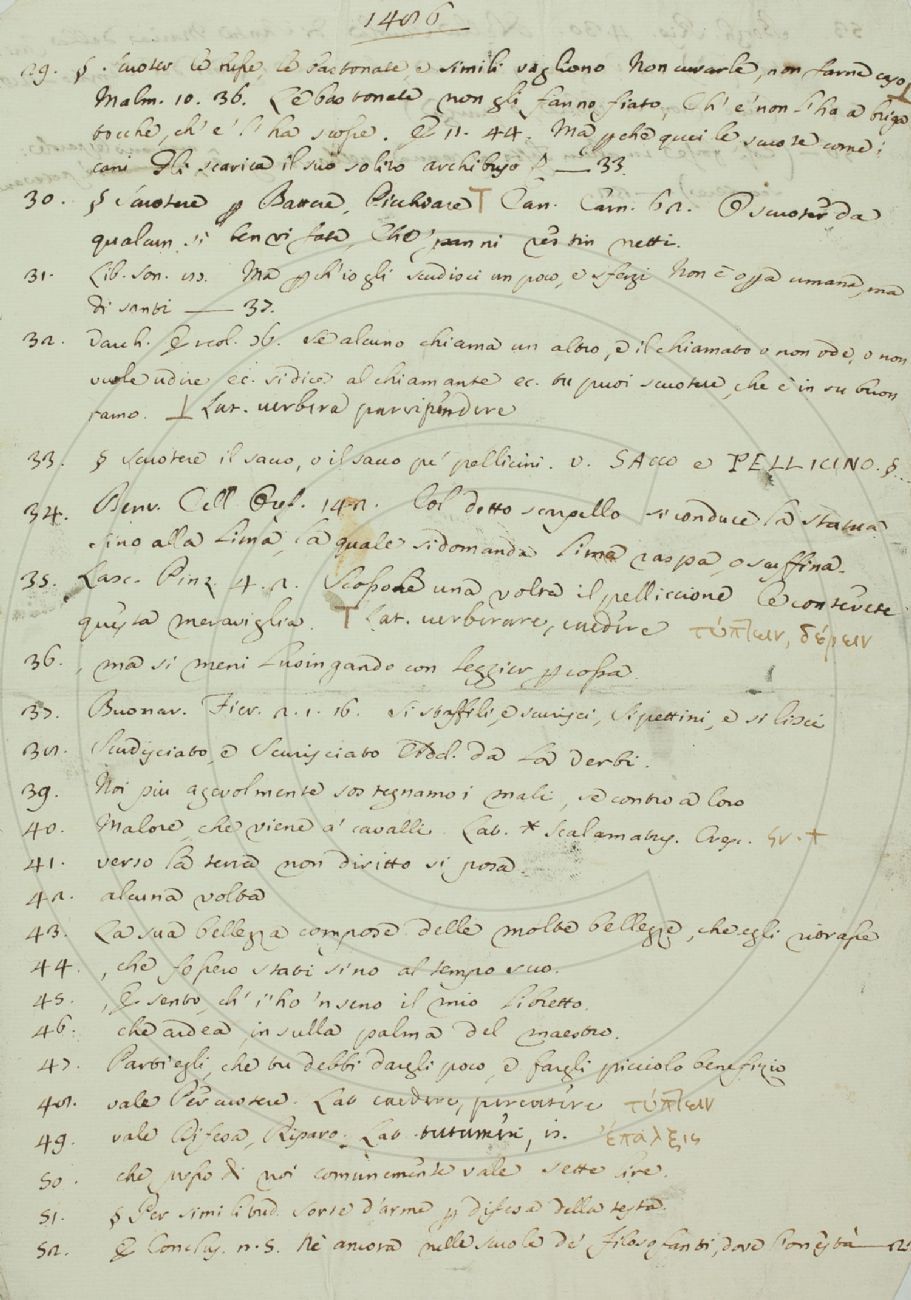 1486
29. § . Scuoter le nespe, le bastonate e simili vagliono Non curarle, non farne caso ⊥
Malm. 10. 36. Le bastonate non gli fanno fiato, Ch' e' non l'ha a briga
tocche, ch' e' l'ha scosse. E 11. 44. Ma p che quei le scuote come i
cani Gli scarica il suo solito archibuso § — 33.
30. § Scuotere p Battere, Picchiare T Can. Carn. 62. O scuoter da
qualcun si ben vi fate, Che' panni netti.
31. Lib. son. Ma p ch'io gli scudisci un poco, e sferzi Non è opa umana, ma
di santi — 37.
32. Varch. Ercol. 76. Se alcuno chiama un altro, e il chiamato o non ode, o non
vuole udire ec. si dice al chiamante ec. tu puoi scuotere, che è in su buon
ramo. ⊥ Lat. verbera parvipendere
33. § Scuotere il sacco, o il sacco pe' pellicini. v. SACCO e PELLICINO. §.
34. Benv. Cell. Oref. 142. Col detto scarpello si conduce la statua
sino alla lima, la quale si domanda lima raspa, o scuffina.
35. Lasc. Pinz. 4. 2. Scossone una volta il pelliccione le conterete
questa meraviglia. T Lat. verberare, caedere τύπτειν, δέρειν
36. , ma si meni lusingando con leggier pcossa.
37. Buonar. Fier. 2. 1. 16. Si staffili, e scurisci, Si pettini, e si lisci
38. Scudisciato, e Scurisciato Add. da La Verbi.
39. Noi piu agevolmente sostegnamo i mali, se contro a loro
40. Malore, che viene a' cavalli. Lat. * Scalamatus. Cresc.
41. verso la terra non diritto si posa.
42. alcuna volta
43. La sua bellezza compose delle molte bellezze, che egli ritrasse
44. , che fossero stati sino al tempo suo.
45. , E sento, ch' i' ho 'n seno il mio libretto.
46. che ardea in sulla palma del maestro.
47. Parti egli, che tu debbi dargli poco, e fargli picciolo benefizio
48. vale Percuotere. Lat. caedere, percutere τύπτειν
49. vale Difesa, Riparo. Lat. tutamen, is. ἔπαλξις
50. che presso di noi comunemente vale sette lire.
51. § Per similitud. Sorte d'arme p difesa della testa.
52. E Conclus. n. 5. Nè ancora nelle scuole de' filosofanti, dove l'onestà —